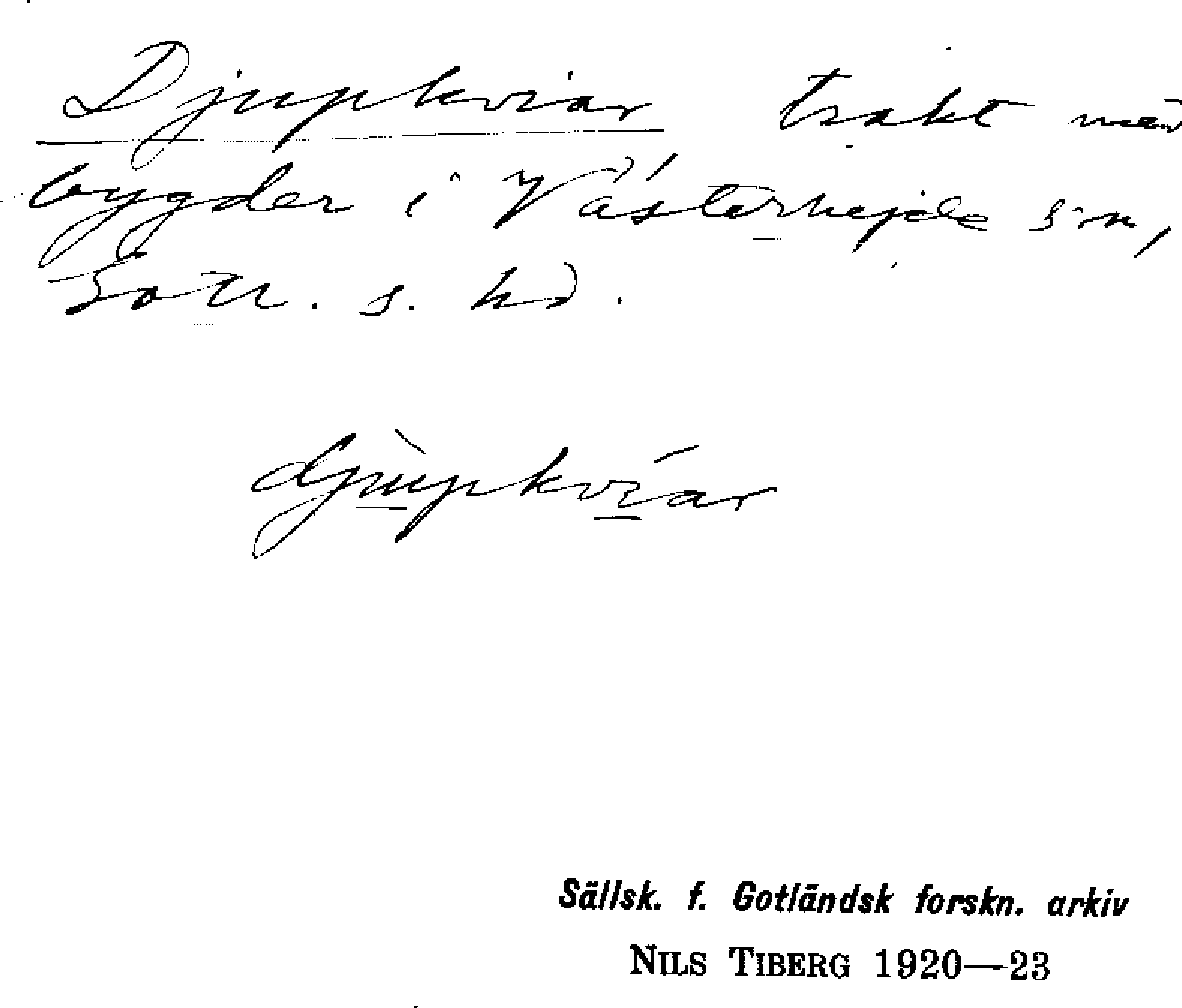 Djupkviar trakt med
bygder i Västerhejde sn,
Gotl. s. hd.
djùpkvíar
Sällsk. f. Gotländsk forskn. arkiv
NILS TIBERG 1920—23